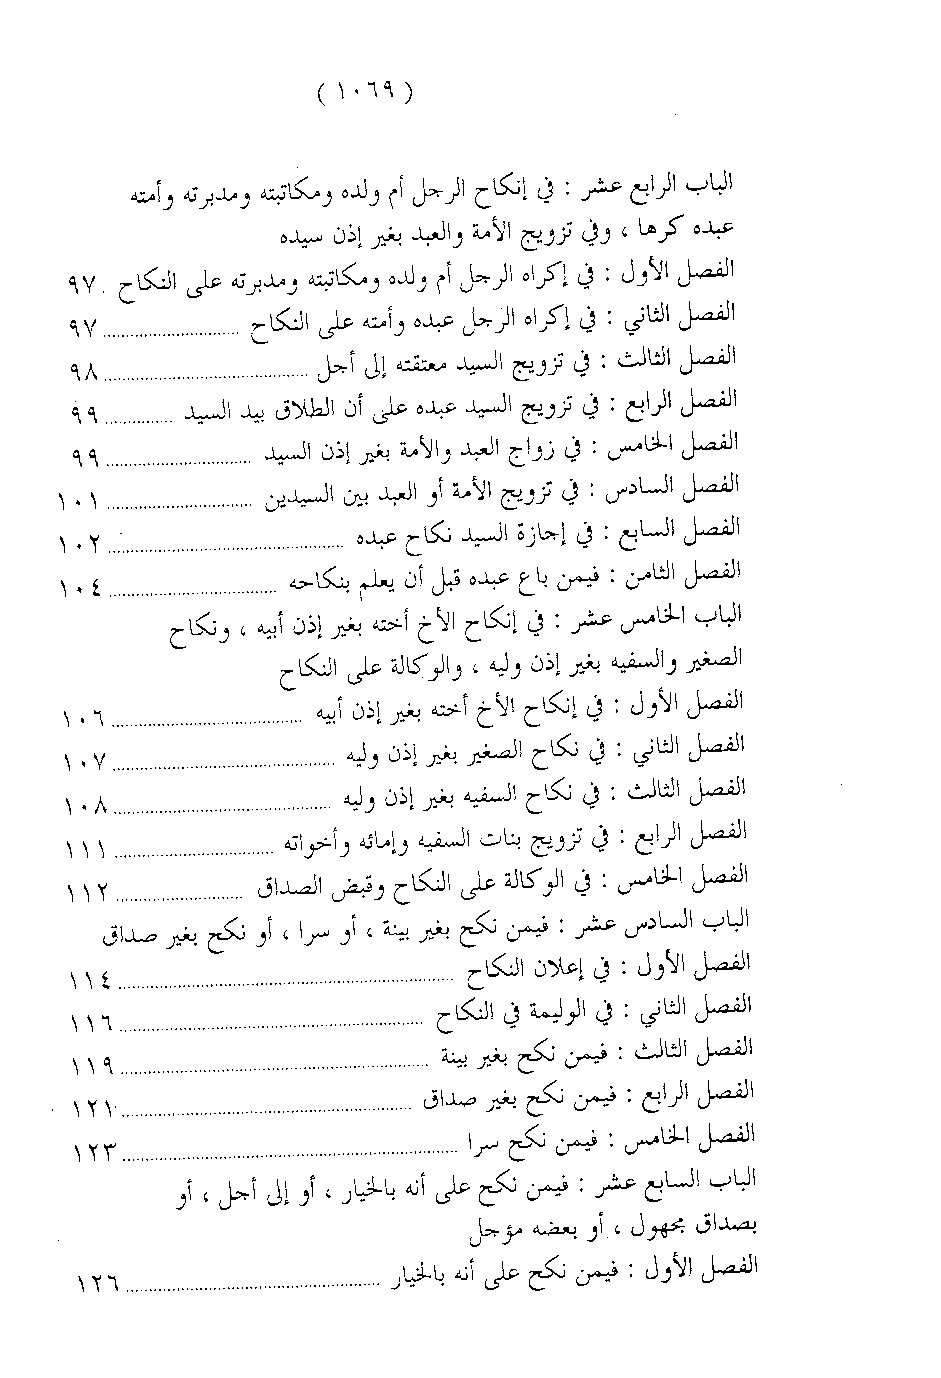 ( ١٠٦٩ )
الباب الرابع عشر : في إنكاح الرجل أم ولده ومكاتبته ومدبرته وأمته
عبده كرها ، وفي تزويج الأمة والعبد بغير إذن سيده
الفصل الأول : في إكراه الرجل أم ولده ومكاتبته ومدبرته على النكاح . ٩٧
الفصل الثاني : في إكراه الرجل عبده وأمته على النكاح ........ ٩٧
الفصل الثالث : في تزويج السيد معتقته إلى أجل ........ ٩٨
الفصل الرابع : في تزويج السيد عبده على أن الطلاق بيد السيد ........ ٩٩
الفصل الخامس : في زواج العبد والأمة بغير إذن السيد ........ ٩٩
الفصل السادس : في تزويج الأمة أو العبد بين السيدين ........ ١٠١
الفصل السابع : في إجازة السيد نكاح عبده ........ ١٠٢
الفصل الثامن : فيمن باع عبده قبل أن يعلم بنكاحه ........ ١٠٤
الباب الخامس عشر : في إنكاح الأخ أخته بغير إذن أبيه ، ونكاح
الصغير والسفيه بغير إذن وليه ، والوكالة على النكاح
الفصل الأول : في إنكاح الأخ أخته بغير إذن أبيه ........ ١٠٦
الفصل الثاني : في نكاح الصغير بغير إذن وليه ........ ١٠٧
الفصل الثالث : في نكاح السفيه بغير إذن وليه ........ ١٠٨
الفصل الرابع : في تزويج بنات السفيه وإمائه وأخواته ........ ١١١
الفصل الخامس : في الوكالة على النكاح وقبض الصداق ........ ١١٢
الباب السادس عشر : فيمن نكح بغير بينة ، أو سرا ، أو نكح بغير صداق
الفصل الأول : في إعلان النكاح ........ ١١٤
الفصل الثاني : في الوليمة في النكاح ........ ١١٦
الفصل الثالث : فيمن نكح بغير بينة ........ ١١٩
الفصل الرابع : فيمن نكح بغير صداق ........ ١٢١
الفصل الخامس : فيمن نكح سرا ........ ١٢٣
الباب السابع عشر : فيمن نكح على أنه بالخيار ، أو إلى أجل ، أو
بصداق مجهول ، أو بعضه مؤجل
الفصل الأول : فيمن نكح على أنه بالخيار ........ ١٢٦